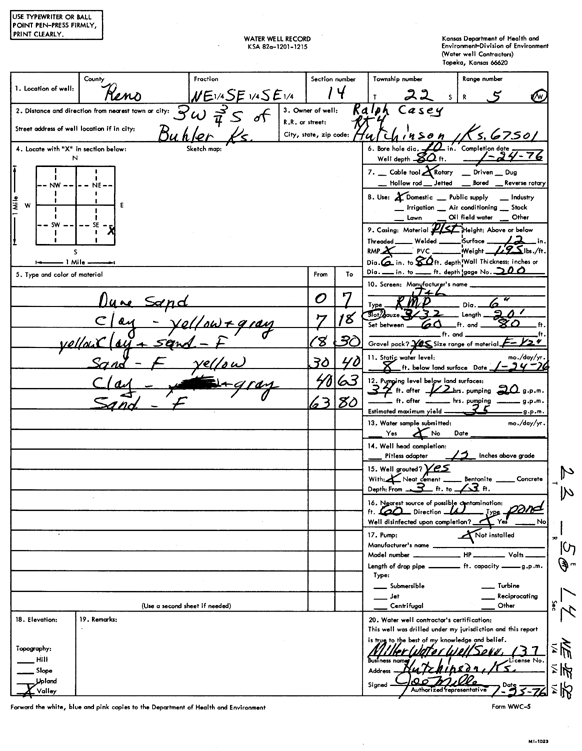 USE TYPEWRITER OR BALL
POINT PEN-PRESS FIRMLY,
PRINT CLEARLY.
WATER WELL RECORD
KSA 82a-1201-1215
Kansas Department of Health and
Environment-Division of Environment
(Water well Contractors)
Topeka, Kansas 66620
1. Location of well:
County
Reno
Fraction
NE 1/4 SE 1/4 SE 1/4
Section number
14
Township number
T 22 S
Range number
R 5 E/W
2. Distance and direction from nearest town or city: 3W 3/4 S of
Street address of well location if in city: Buhler Ks.
3. Owner of well: Ralph Casey
R.R. or street: Rt 4
City, state, zip code: Hutchinson, Ks. 67501
4. Locate with "X" in section below:
Sketch map:
N
NW NE
W E
SW SE X
S
1 Mile
1 Mile
6. Bore hole dia. 10 in. Completion date
Well depth 80 ft. 1-24-76
7. Cable tool X Rotary Driven Dug
Hollow rod Jetted Bored Reverse rotary
8. Use: X Domestic Public supply Industry
Irrigation Air conditioning Stock
Lawn Oil field water Other
9. Casing: Material Plst Height: Above or below
Threaded Welded Surface 12 in.
RMP X PVC Weight 1.95 lbs./ft.
Dia. 6 in. to 80 ft. depth Wall Thickness: inches or
Dia. in. to ft. depth gage No. 200
5. Type and color of material
From To
Dune Sand 0 7
Clay - yellow + gray 7 18
yellow Clay + sand - F 18 30
Sand - F yellow 30 40
Clay - + gray 40 63
Sand - F 63 80
(Use a second sheet if needed)
10. Screen: Manufacturer's name
Type RMP Dia. 6"
Slot/gauze 3/32 Length 20'
Set between 60 ft. and 80 ft.
ft. and ft.
Gravel pack? Yes Size range of material F-1/2"
11. Static water level: mo./day/yr.
8 ft. below land surface Date 1-24-76
12. Pumping level below land surfaces:
34 ft. after 1/2 hrs. pumping 20 g.p.m.
ft. after hrs. pumping g.p.m.
Estimated maximum yield 35 g.p.m.
13. Water sample submitted: mo./day/yr.
Yes X No Date
14. Well head completion:
Pitless adapter 12 Inches above grade
15. Well grouted? Yes
With: X Neat cement Bentonite Concrete
Depth: From 3 ft. to 13 ft.
16. Nearest source of possible contamination:
ft. 60 Direction W Type pond
Well disinfected upon completion? X Yes No
17. Pump: X Not installed
Manufacturer's name
Model number HP Volts
Length of drop pipe ft. capacity g.p.m.
Type:
Submersible Turbine
Jet Reciprocating
Centrifugal Other
18. Elevation:
19. Remarks:
Topography:
Hill
Slope
Upland
X Valley
20. Water well contractor's certification:
This well was drilled under my jurisdiction and this report
is true to the best of my knowledge and belief.
Miller Water Well Serv. 137
Business name License No.
Address Hutchinson, Ks.
Signed Joe Miller Date 1-25-76
Authorized representative
Forward the white, blue and pink copies to the Department of Health and Environment
Form WWC-5
T 22
R 5 E W
Sec 14
NE 1/4 SE 1/4 SE 1/4